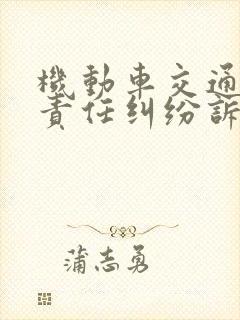 機動車交通
責任糾纷訴
蒲志勇